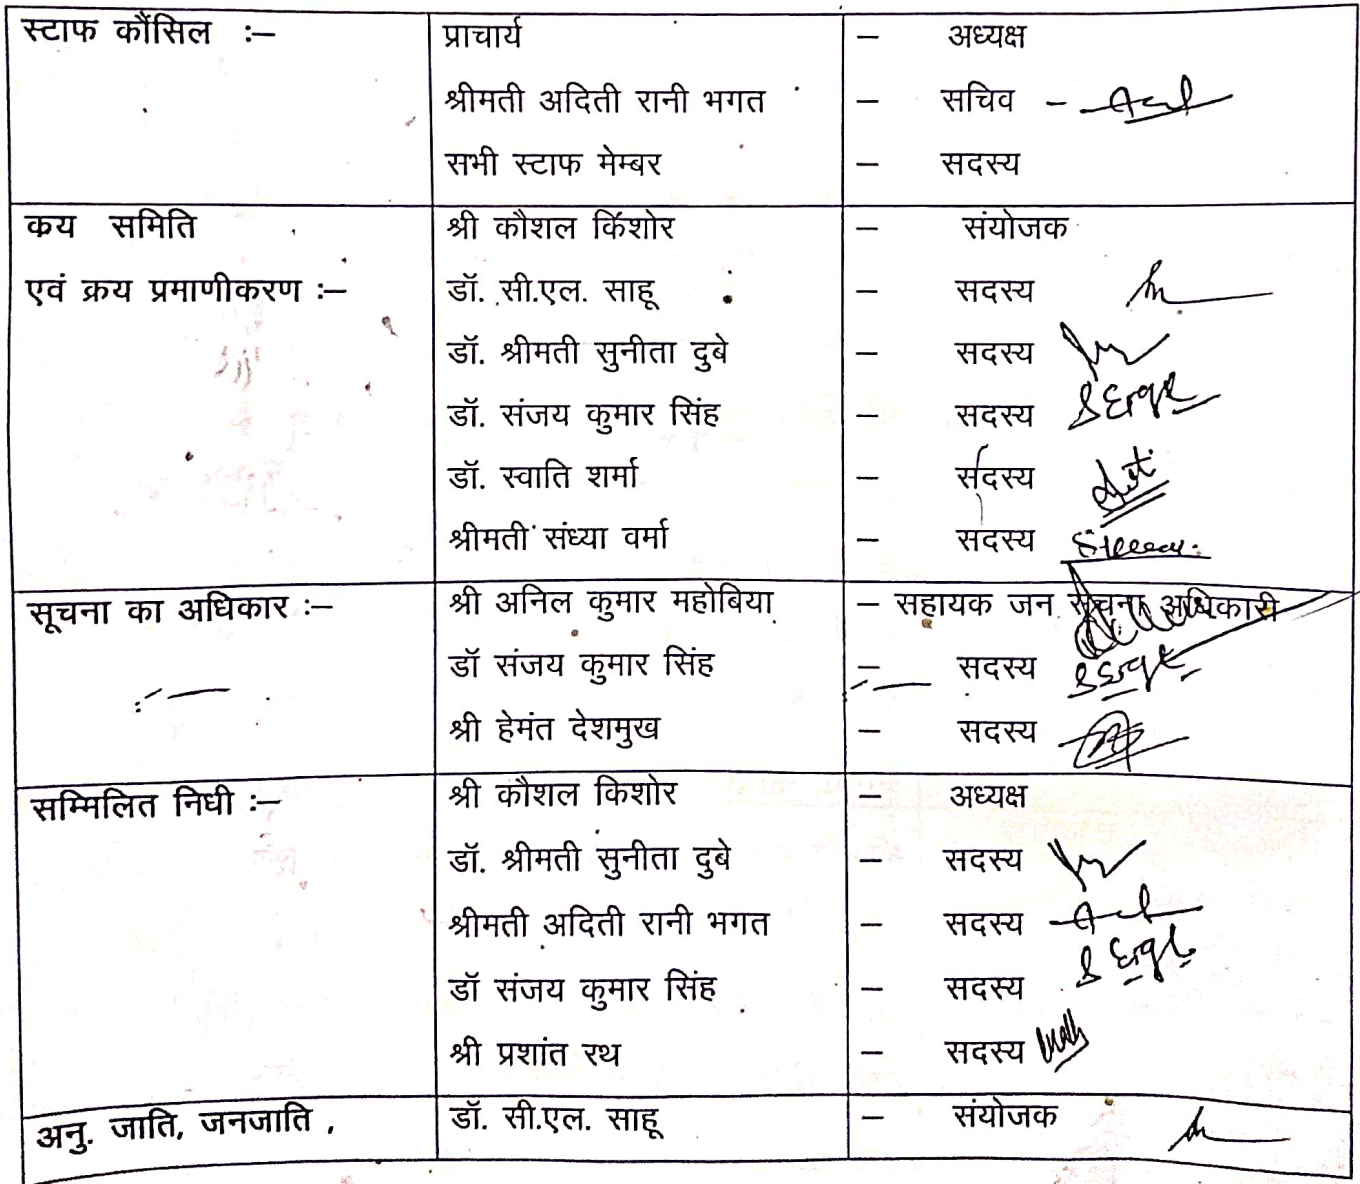 स्टाफ कौंसिल :– प्राचार्य – अध्यक्ष
श्रीमती अदिती रानी भगत – सचिव –
सभी स्टाफ मेम्बर – सदस्य
कय समिति श्री कौशल किशोर – संयोजक
एवं क्रय प्रमाणीकरण :– डॉ. सी.एल. साहू – सदस्य
डॉ. श्रीमती सुनीता दुबे – सदस्य
डॉ. संजय कुमार सिंह – सदस्य
डॉ. स्वाति शर्मा – सदस्य
श्रीमती संध्या वर्मा – सदस्य
सूचना का अधिकार :– श्री अनिल कुमार महोबिया – सहायक जन सूचना अधिकारी
डॉ संजय कुमार सिंह – सदस्य
श्री हेमंत देशमुख – सदस्य
सम्मिलित निधी :– श्री कौशल किशोर – अध्यक्ष
डॉ. श्रीमती सुनीता दुबे – सदस्य
श्रीमती अदिती रानी भगत – सदस्य
डॉ संजय कुमार सिंह – सदस्य
श्री प्रशांत रथ – सदस्य
अनु. जाति, जनजाति , डॉ. सी.एल. साहू – संयोजक